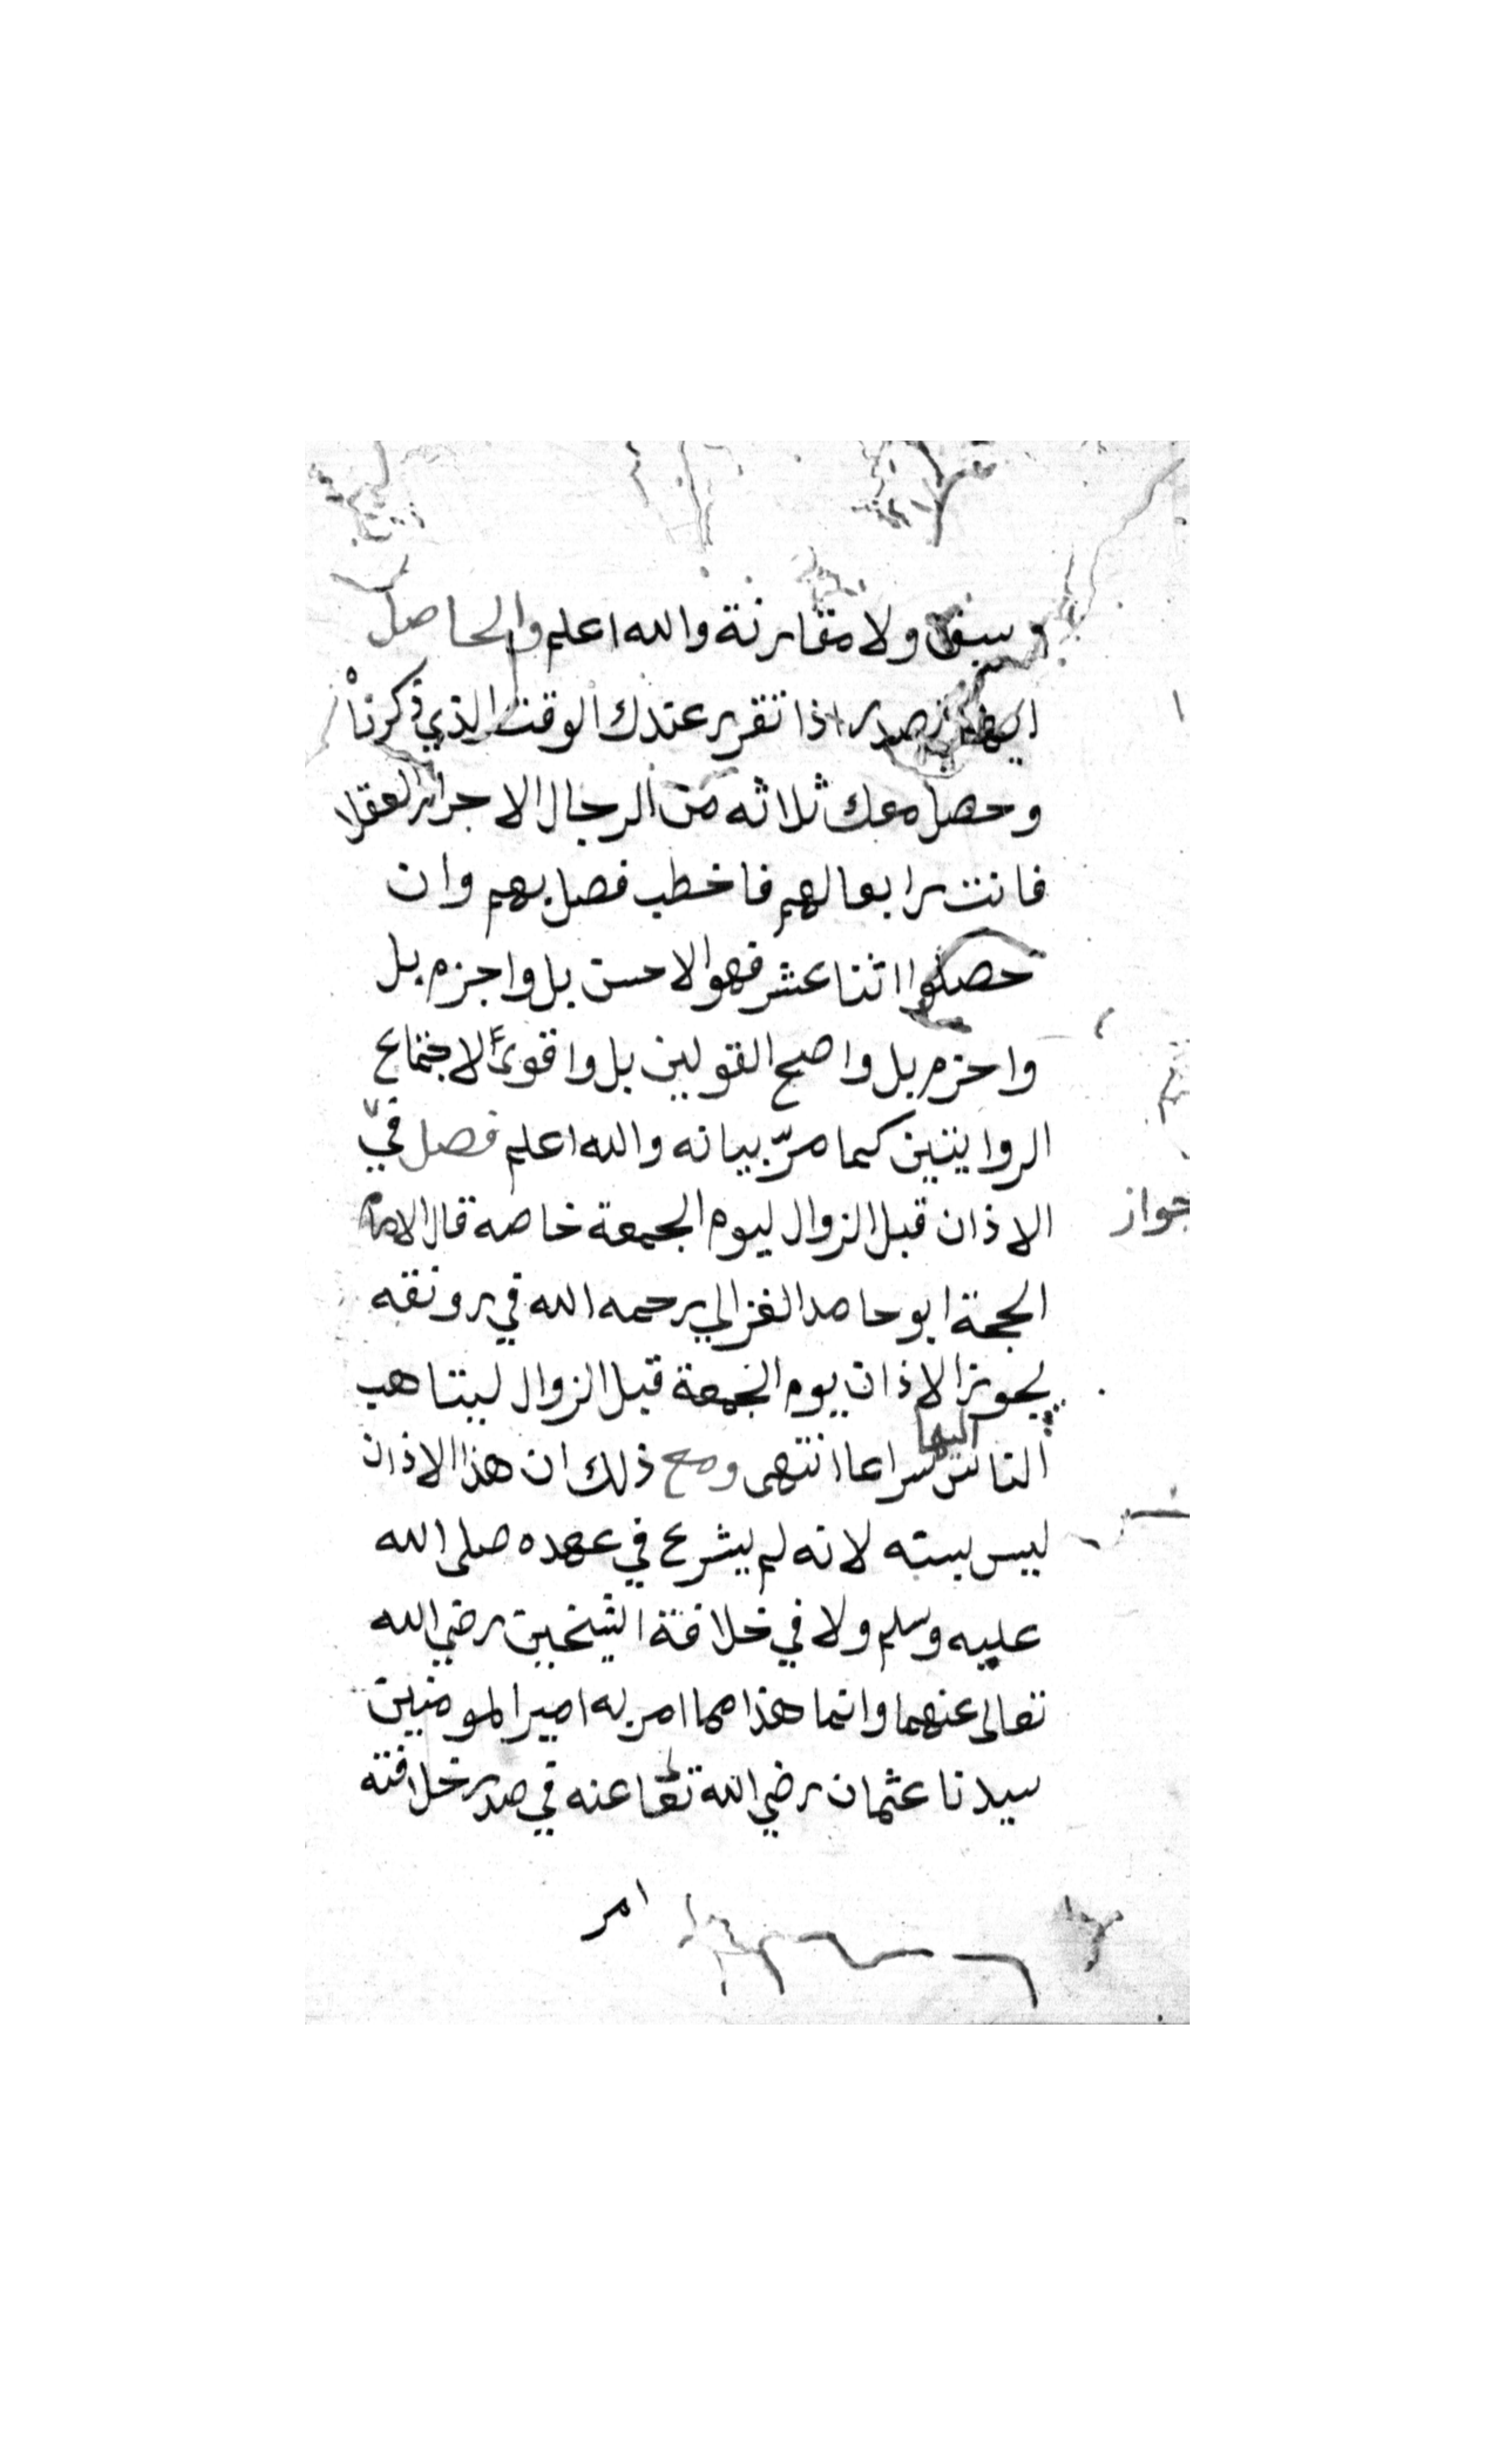 وسبق ولا مقارنة والله اعلم والحاصل
ايها اذا تقرر عندك الوقت الذي ذكرناه
وحصل معك ثلاثه من الرجال الاحرار العقلا
فانت رابعا لهم فاخطب فصل بهم وان
حصلوا اثنا عشر فهو الاحسن بل واجزم بل
واحزم بل واصح القولين بل واقوى الاجتماع
الروايتين كما مرّ بيانه والله اعلم فصل في
جواز
الاذان قبل الزوال ليوم الجمعة خاصه قال الامام
الحجة ابو حامد الغزالي رحمه الله في رونقه
يجوز الاذان يوم الجمعة قبل الزوال ليتاهب
اليها
الناس سراعا انتهى ومع ذلك ان هذا الاذان
ليس بسته لانه لم يشرع في عهده صلى الله
عليه وسلم ولا في خلافة الشيخين رضي الله
تعالى عنهما وانما هذا مما امر به امير المومنين
سيدنا عثمان رضي الله تعا عنه في صدر خلافته
امر